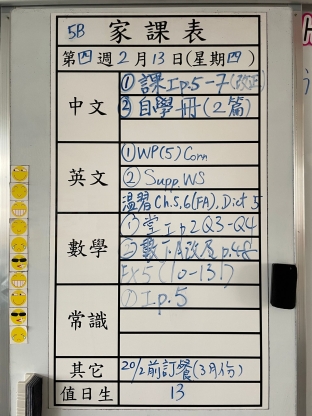 5B 家課表
第四週2月13日(星期四)
中文
①課工p.5-7
②自學冊(2篇)
英文
①WP(5) Corr
②Supp.WS
溫習Ch.5,6(FA).Dict 5
數學
①堂工p2 Q3-Q4
p.48
Ex5(10-13)
常識
①工p.5
其它
20/2前訂餐(3月份)
值日生
13